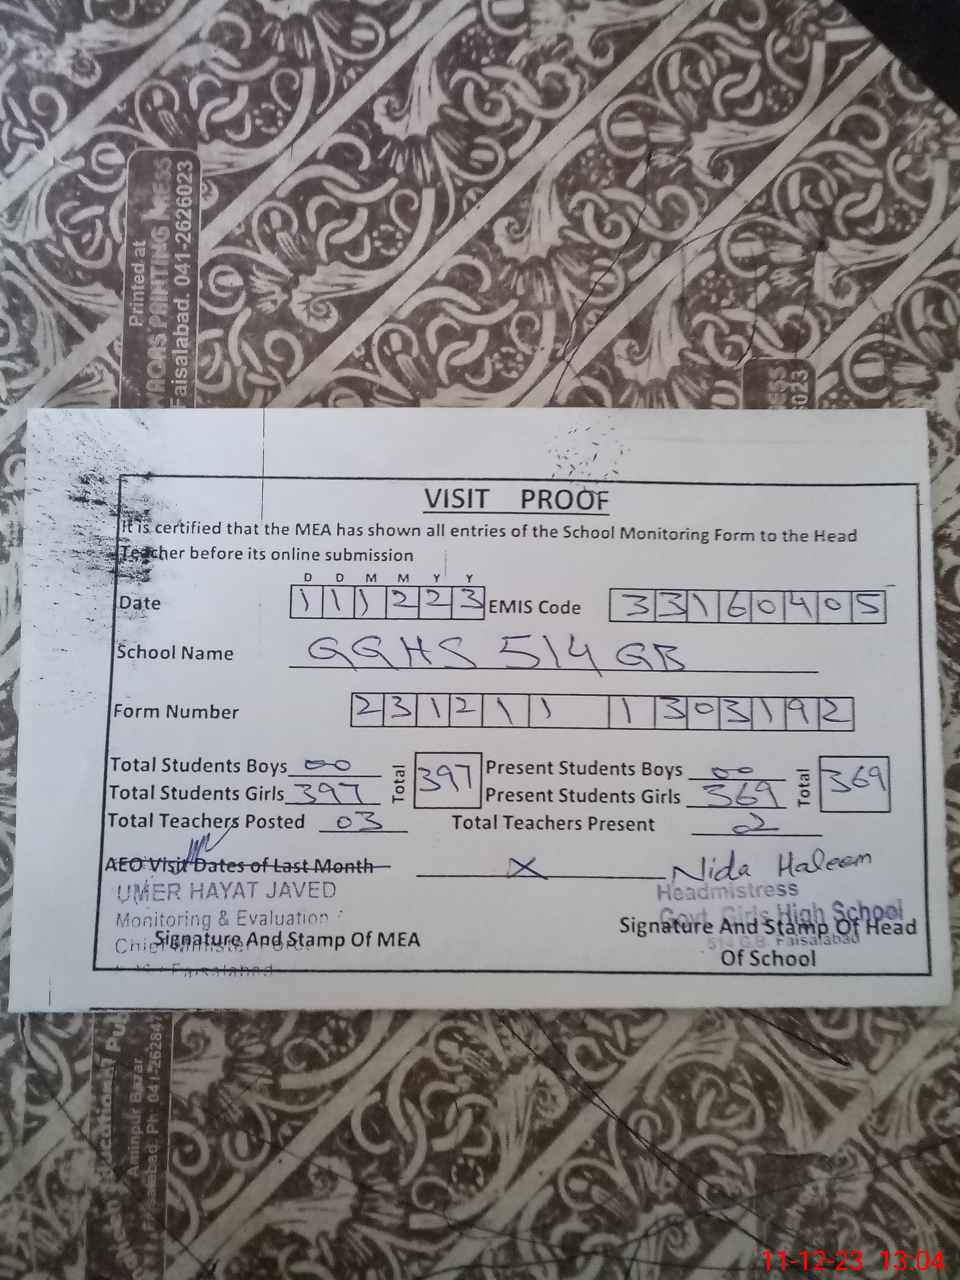 Printed at
WAQAS PRINTING MESS
Faisalabad. 041-2626023
VISIT PROOF
It is certified that the MEA has shown all entries of the School Monitoring Form to the Head
Teacher before its online submission
D D M M Y Y
Date 111223 EMIS Code 33160405
School Name GGHS 514 GB
Form Number 231211 1303192
Total Students Boys 00 Total 397 Present Students Boys 00 Total 369
Total Students Girls 397 Present Students Girls 369
Total Teachers Posted 03 Total Teachers Present 2
AEO Visit Dates of Last Month X Nida Haleem
UMER HAYAT JAVED Headmistress
Monitoring & Evaluation Govt. Girls High School
Signature And Stamp Of MEA Signature And Stamp Of Head
514 G.B. Faisalabad
Of School
Faisalabad
Aminpur Bazar
Faisalabad. Ph: 041-26284
11-12-23 13:04